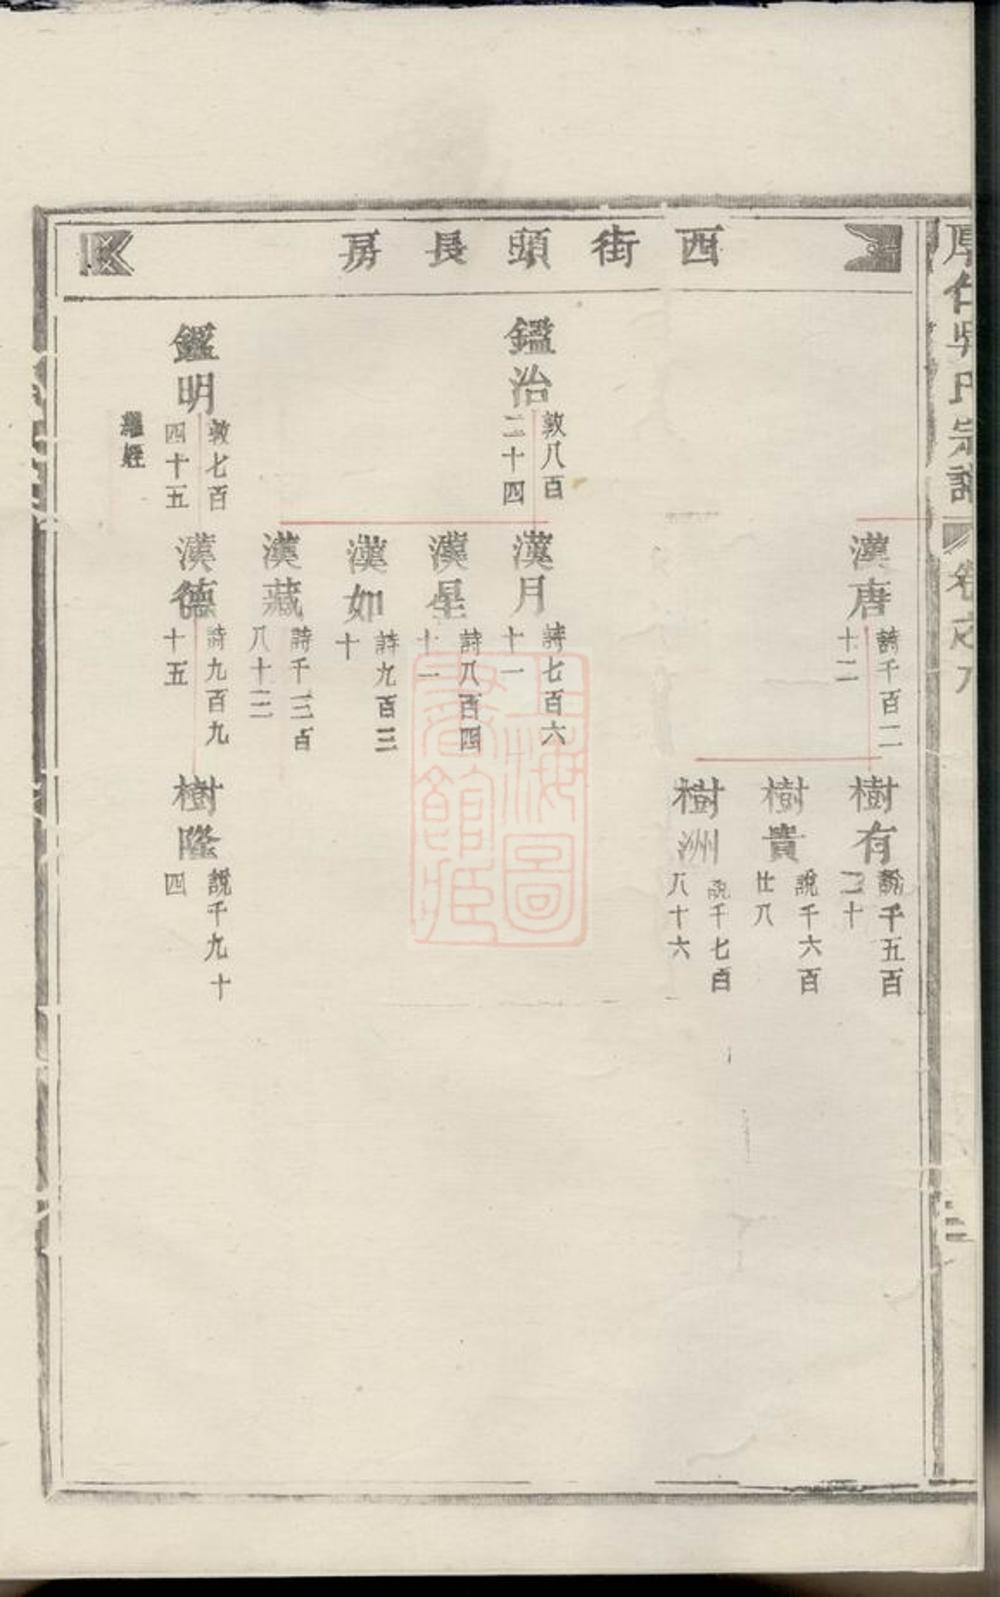 厚仁吳氏宗譜
卷之八
西街頭長房
漢唐
詩千百二
十二
樹有
說千五百
二十
樹貴
說千六百
廿八
樹洲
說千七百
八十六
鑑治
敦八百
二十四
漢月
詩七百六
十一
漢星
詩八百四
十二
漢如
詩九百三
十
漢藏
詩千三百
八十三
鑑明
敦七百
四十五
繼姪
漢德
詩九百九
十五
樹隆
說千九十
四
上海圖書館藏